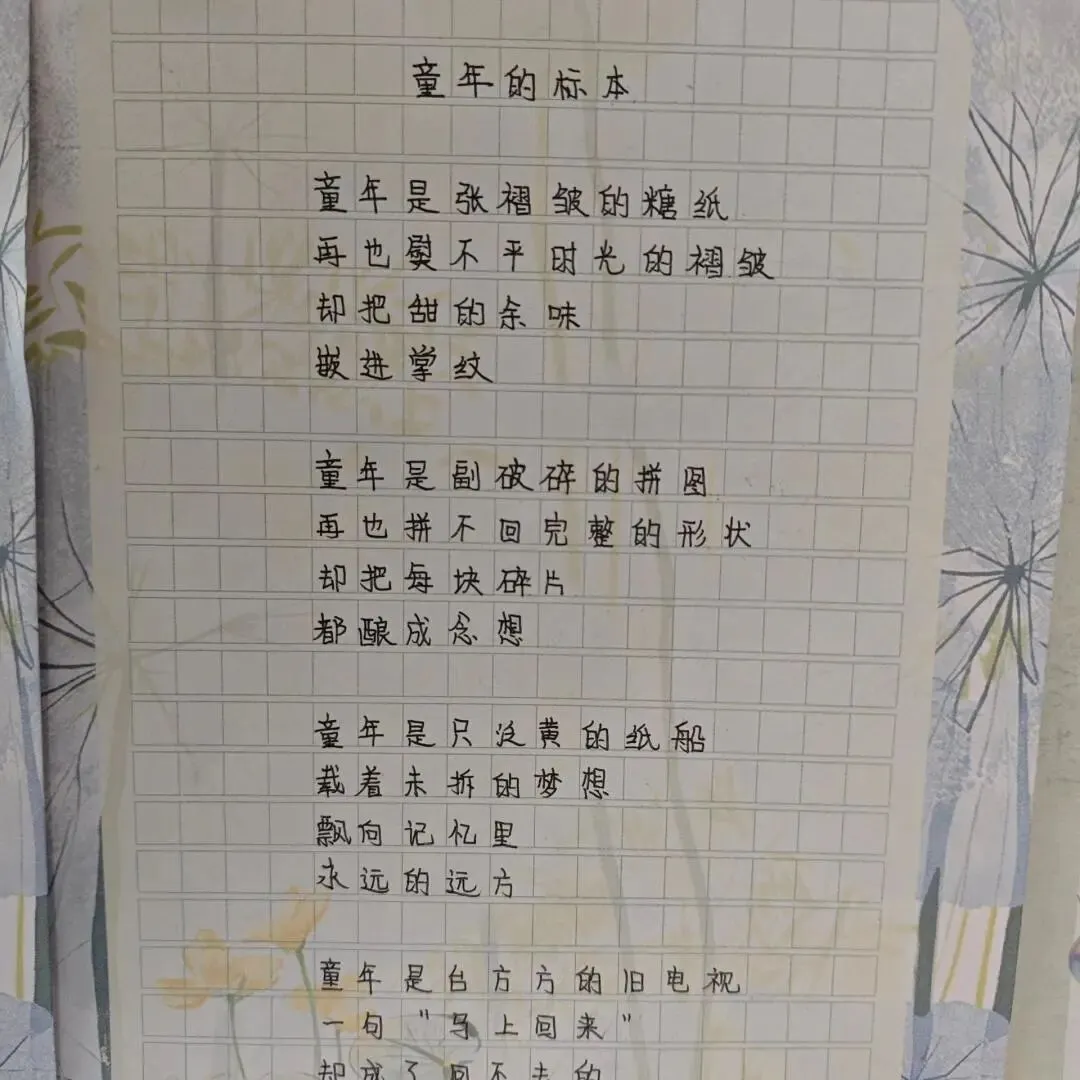 童年的标本
童年是张褶皱的糖纸
再也熨不平时光的褶皱
却把甜的余味
嵌进掌纹
童年是副破碎的拼图
再也拼不回完整的形状
却把每块碎片
都酿成念想
童年是只泛黄的纸船
载着未拆的梦想
飘向记忆里
永远的远方
童年是台方方的旧电视
一句"马上回来"
却成了回不去的